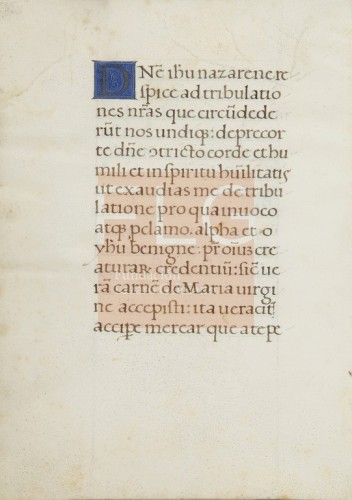 DNē ihu nazarene re
spice ad tribulatio
nes nr̄as que circūdede
rūt nos undiq; deprecor
te dn̄e cōtricto corde et hu
mili et in spiritu hūilitatis
ut exaudias me de tribu
latione pro qua inuoco
atq; pclamo. alpha et o
o ihu benigne:
creaturar̄ credentiū: sic ue
rā carnē de Maria uirgi
ne accepisti: ita ueracit̄
accipe mercar que a te pe